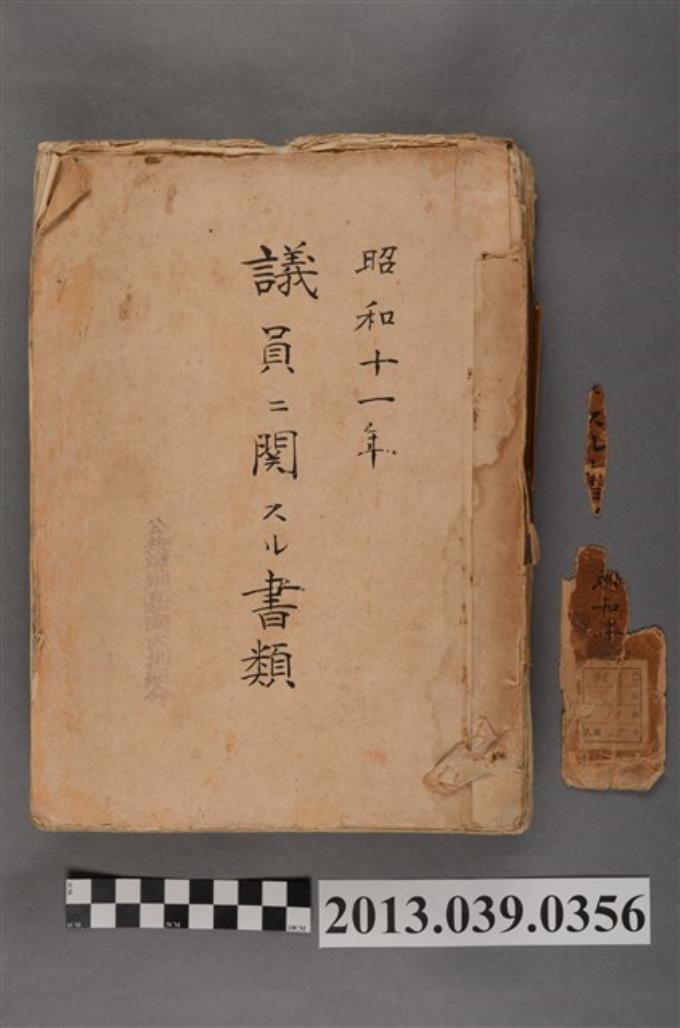 昭和十一年
議員ニ関スル書類
公共埤圳嘉南大圳組合
スル書
昭和十
2013.039.0356